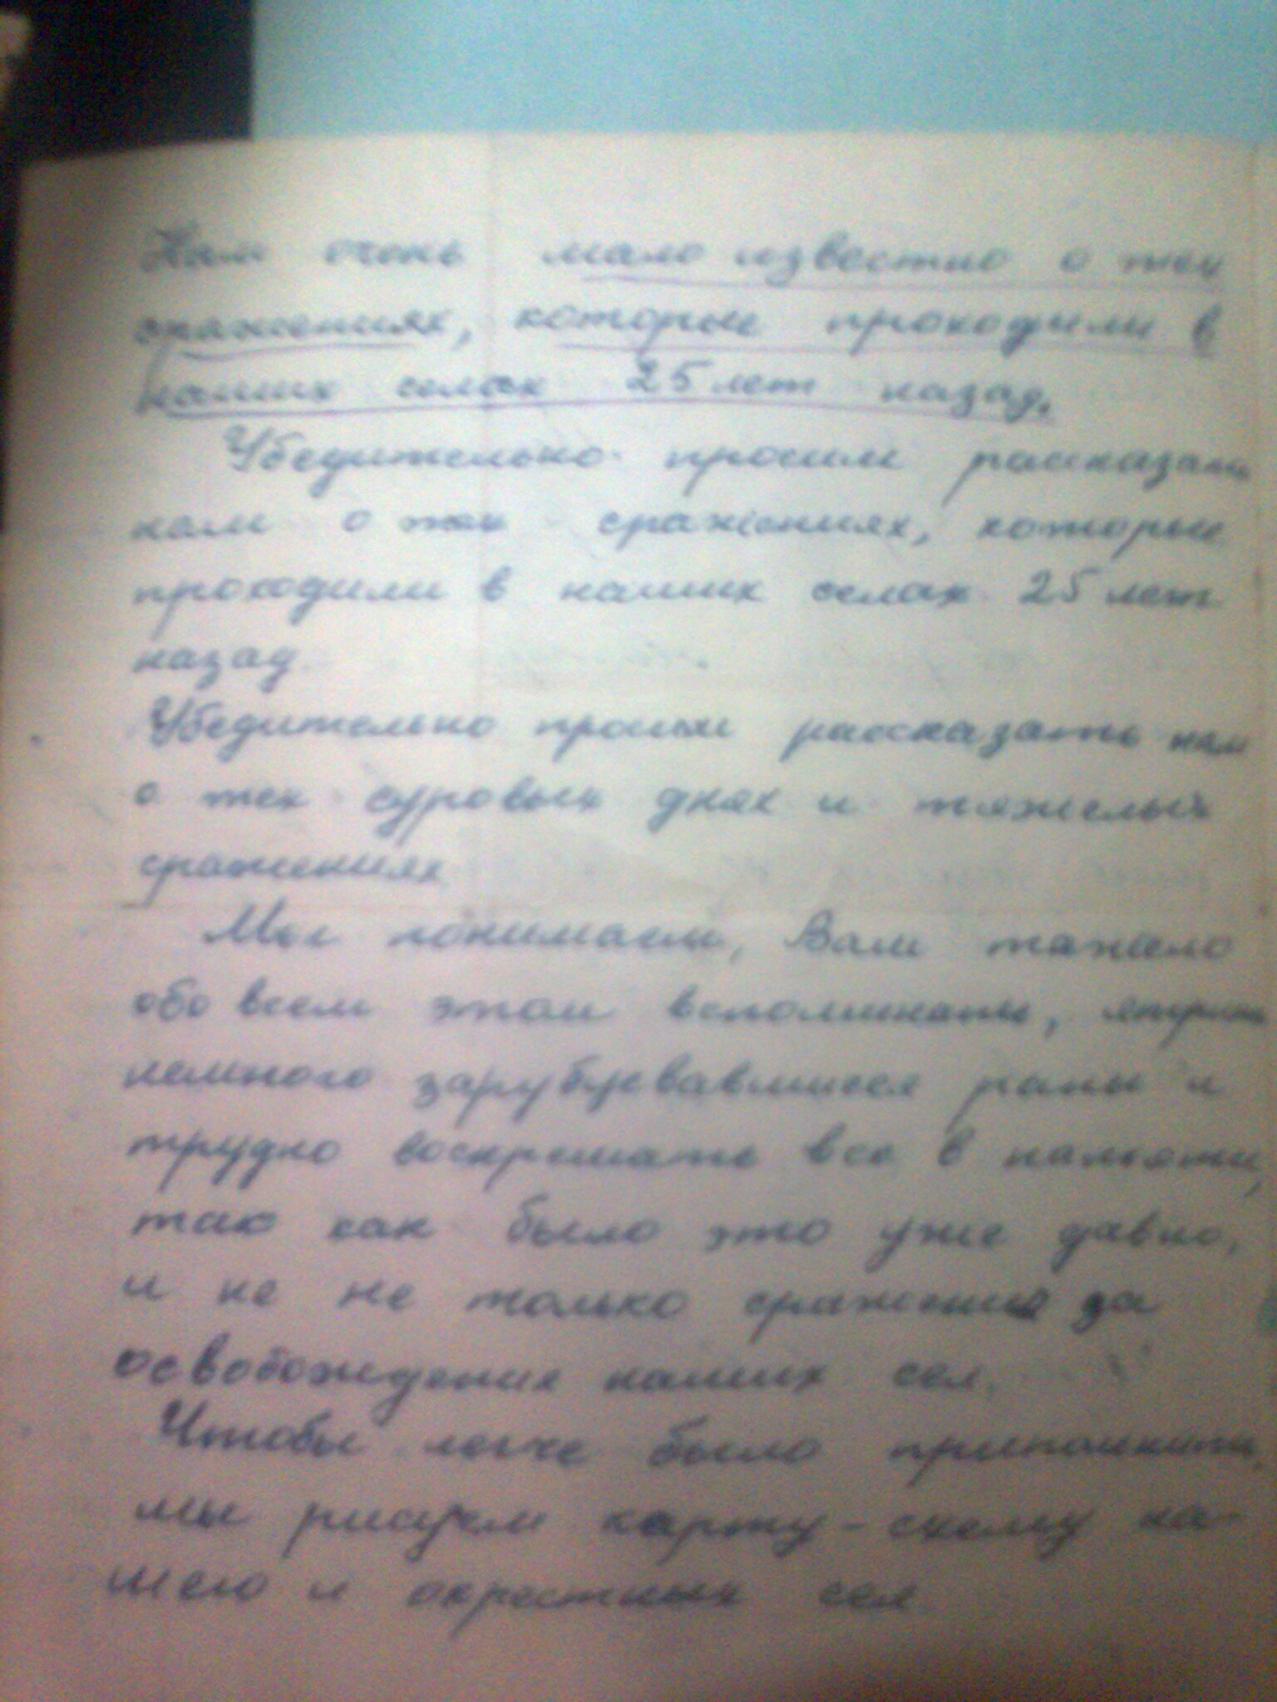 Нам очень мало известно о тех
сражениях, которые проходили в
наших селах 25 лет назад.
Убедительно просим рассказать
нам о тех сражениях, которые
проходили в наших селах 25 лет
назад
Убедительно просим рассказать нам
о тех суровых днях и тяжелых
сражениях
Мы понимаем, Вам тяжело
обо всем этом вспоминать,
немного зарубцевавшиеся раны и
трудно воскрешать все в памяти,
так как было это уже давно,
и не не только сражения за
освобождения наших сел.
Чтобы легче было припомнить,
мы рисуем карту-схему на-
шего и окрестных сел